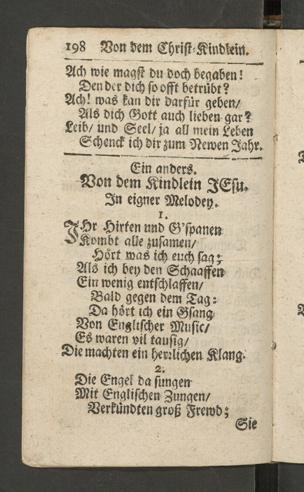 198 Von dem Christ-Kindlein.
Ach wie magst du doch begaben!
Den der dich so offt betrübt?
Ach! was kan dir darfür geben/
Als dich Gott auch lieben gar?
Leib/ und Seel/ ja all mein Leben
Schenck ich dir zum Newen Jahr.
Ein anders.
Von dem Kindlein JEsu.
In eigner Melodey.
1.
IHr Hirten und G'spanen
Kombt alle zusamen/
Hört was ich euch sag;
Als ich bey den Schaaffen
Ein wenig entschlaffen/
Bald gegen dem Tag:
Da hört ich ein Gsang
Von Englischer Music/
Es waren vil tausig/
Die machten ein herrlichen Klang.
2.
Die Engel da sungen
Mit Englischen Zungen/
Verkündten groß Frewd;
Sie